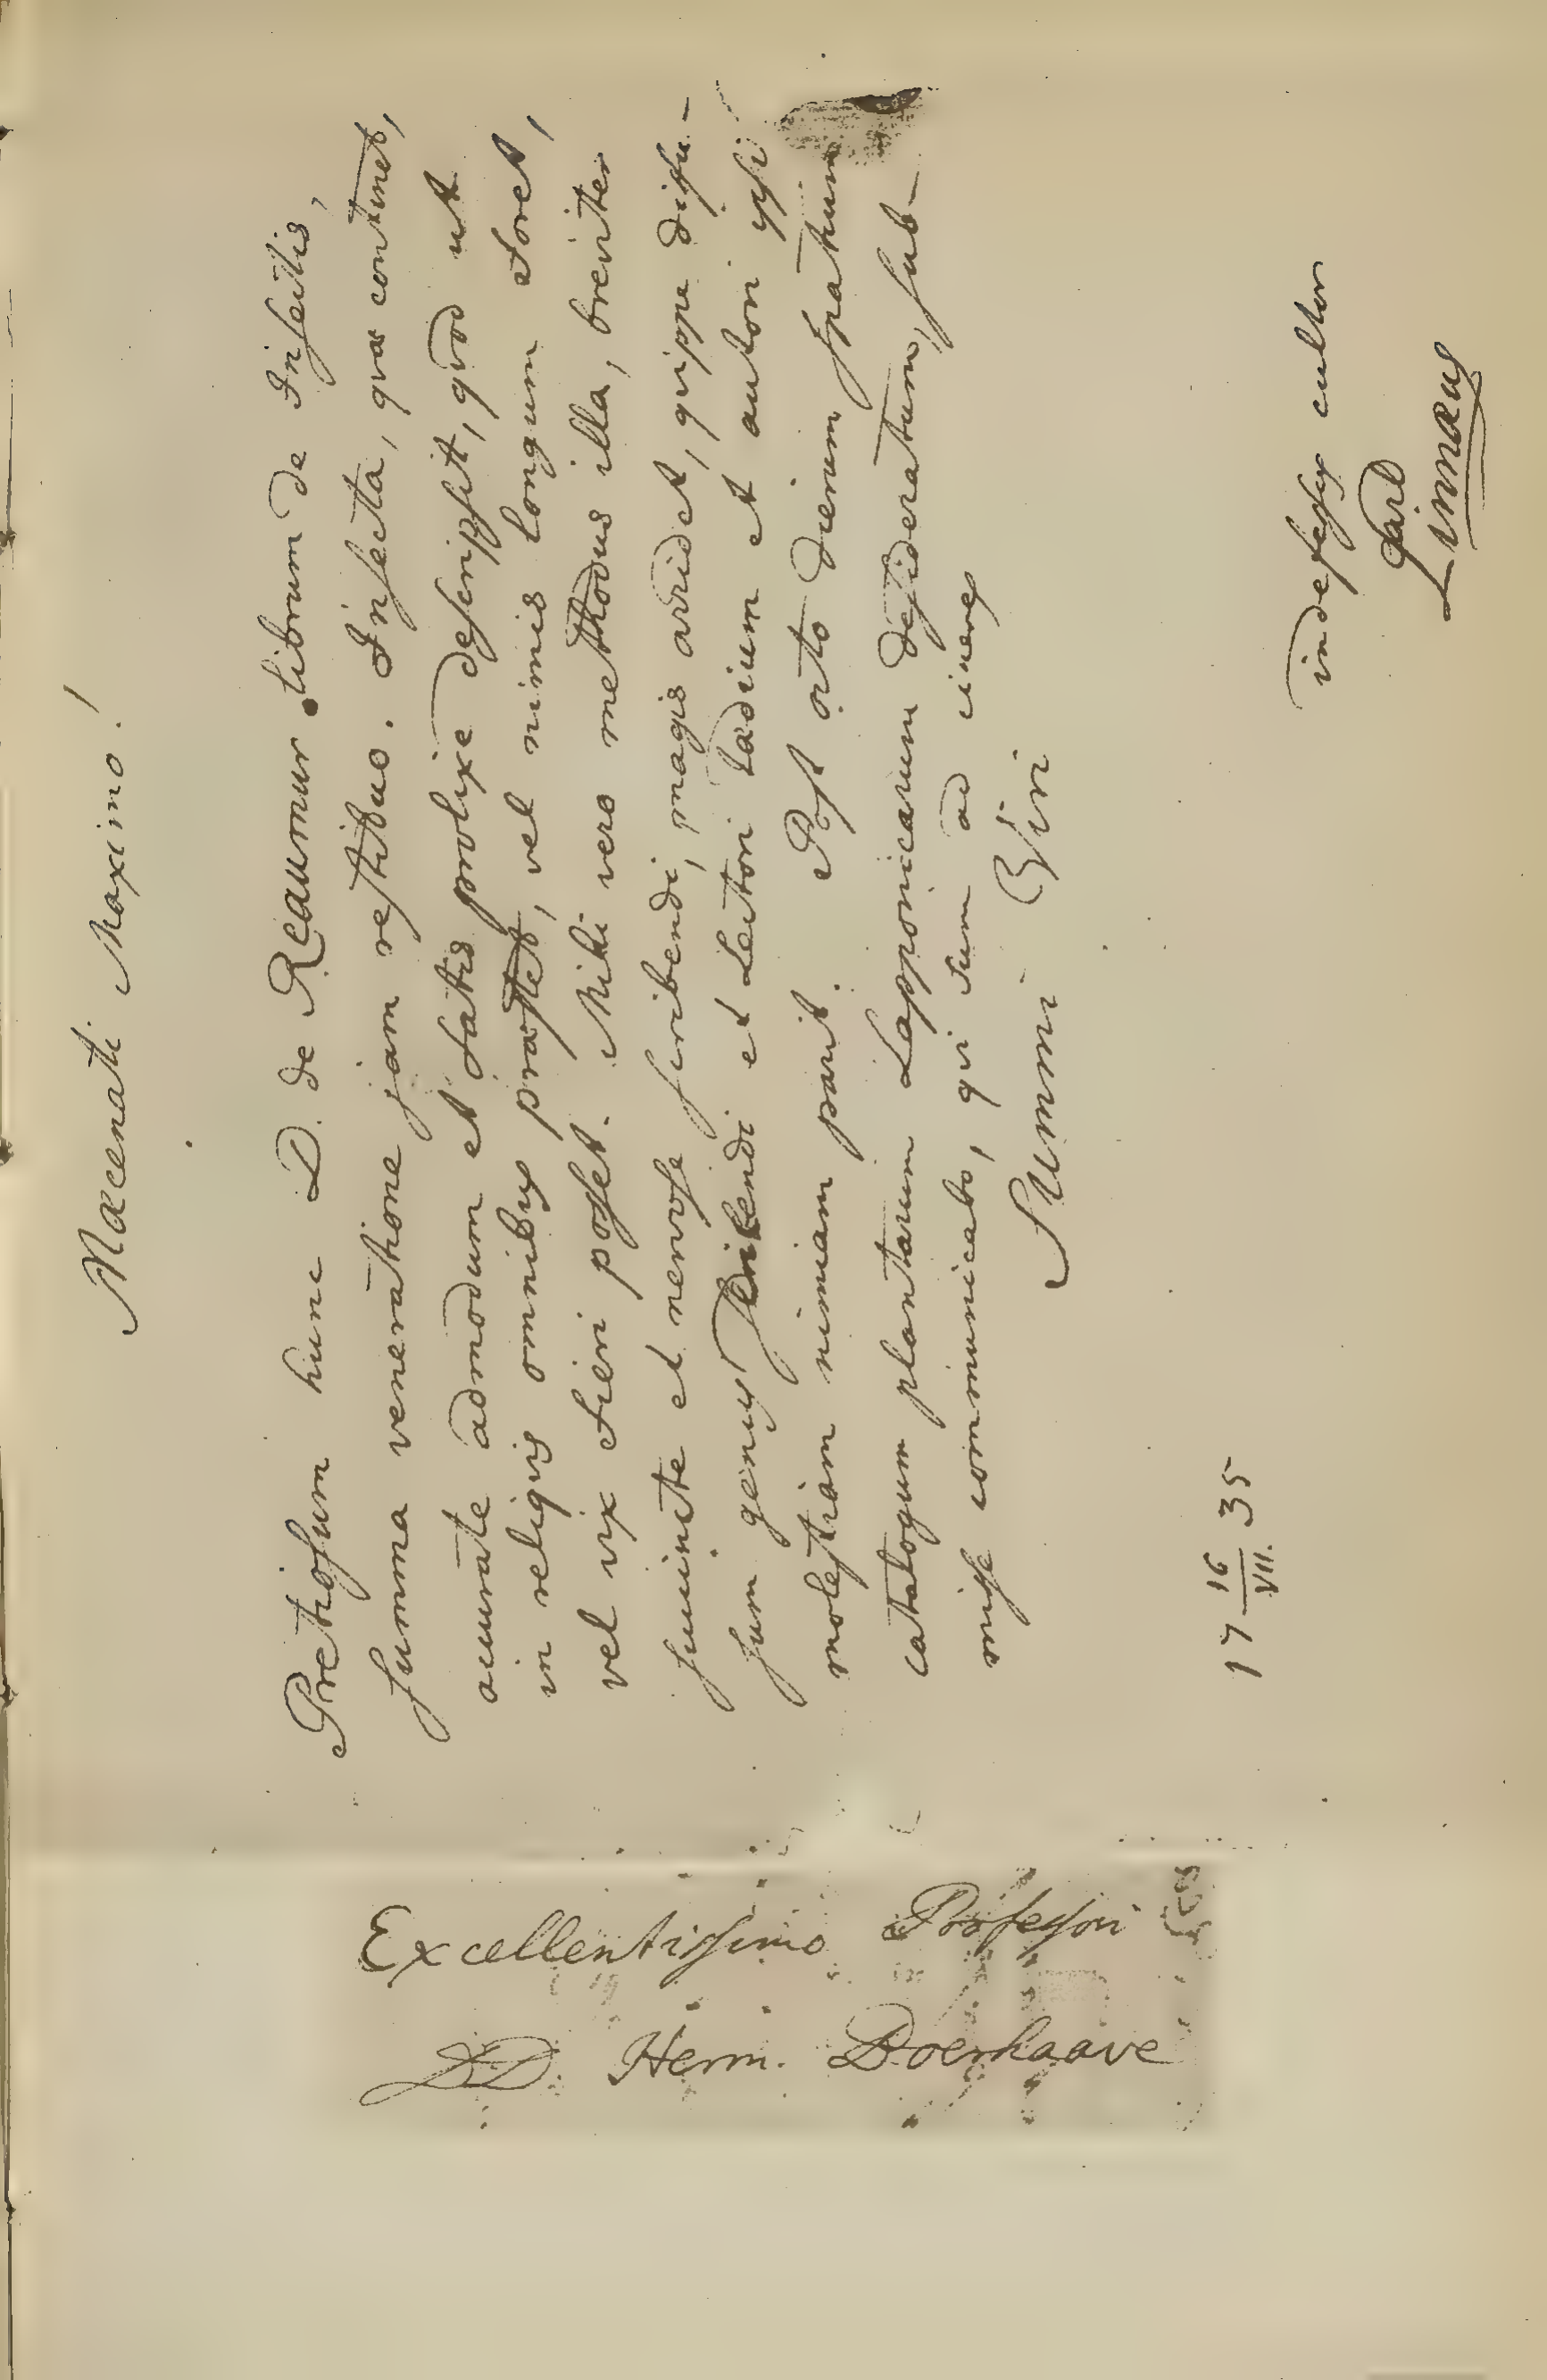 Mæcenati Maximo!
Pretiosum hunc D. de Reaumur librum de Insectis,
summa veneratione jam restituo. Insecta, quæ continet,
accurate admodum et satis prolixe descripsit, quod ut
in reliquis omnibus præstet, vel nimis longum foret,
vel vix fieri posset. Mihi vero methodus illa, breviter
succincte et nervose scribendi, magis arridet, quippe diffu-
sum genus scribendi et Lectori tædium et autori ipsi
molestiam nimiam parit. Post octo dierum spatium
catalogum plantarum Lapponicarum desideratum, sub-
misse communicabo, qui sum ad cineres
Summi Viri
indefessus cultor
Carl
Linnæus
17 16/VII. 35
Excellentissimo Professori
DD. Herm. Boerhaave